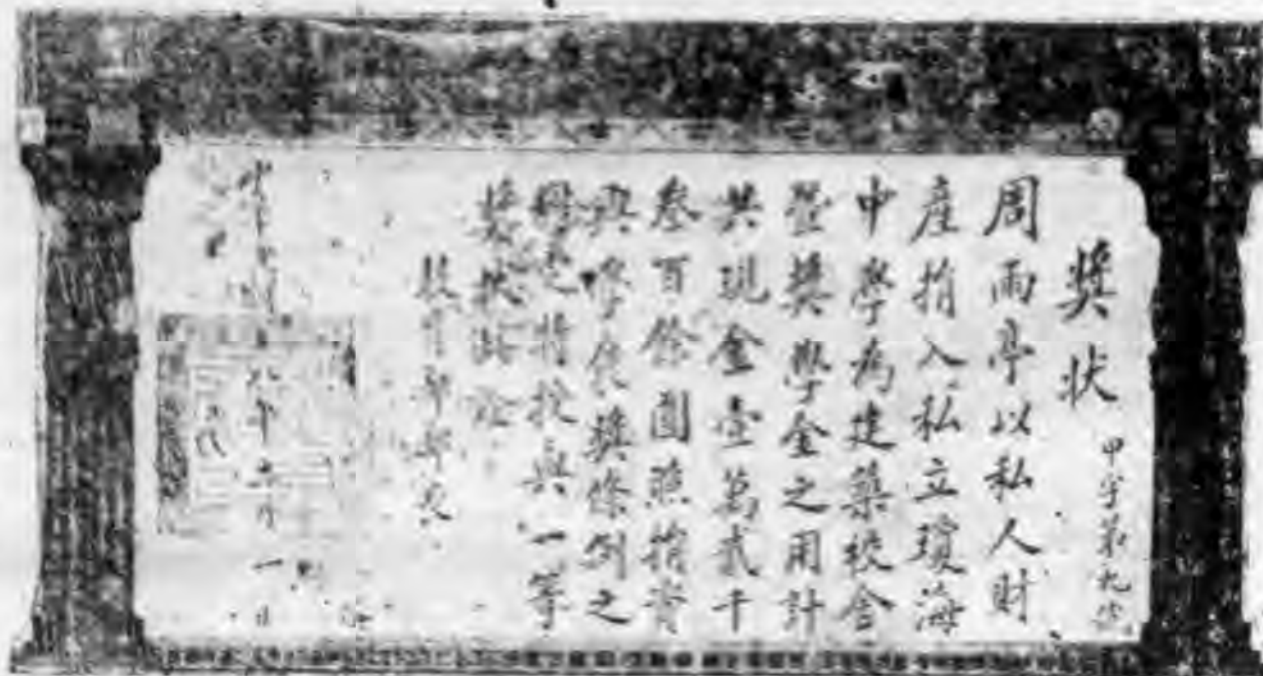 獎狀
甲字第九號
周雨亭以私人財
產捐入私立瓊海
中學為建築校舍
暨獎學金之用計
共現金壹萬貳千
叁百餘圓照捐資
興學褒獎條例之
規定特授與一等
獎狀此證
教育部部長
中華民國年月一日